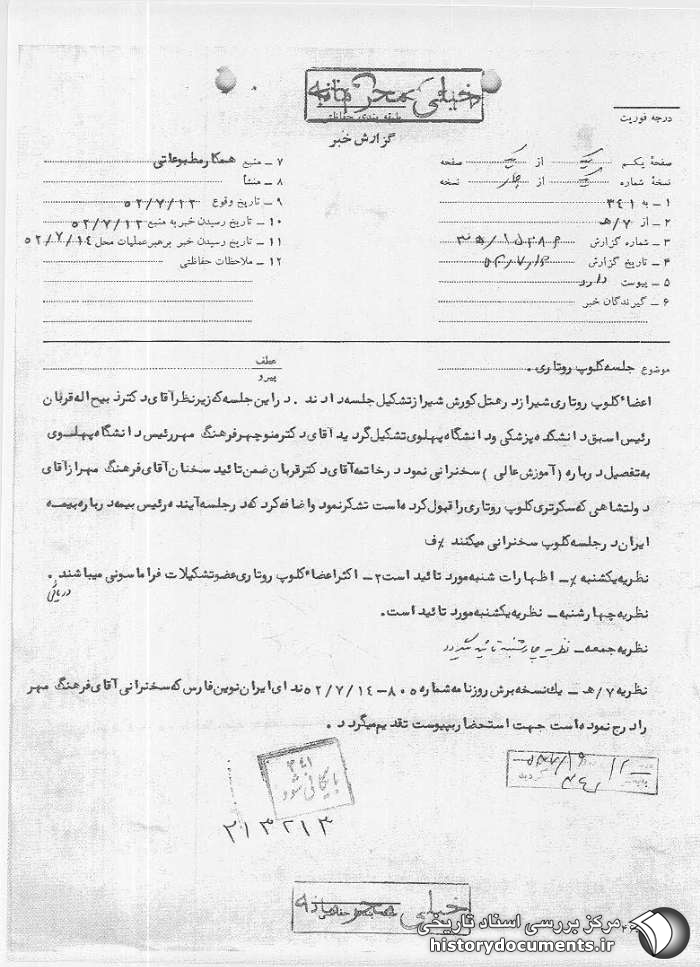 خیلی محرمانه
طبقه بندی حفاظتی
گزارش خبر
درجه فوریت
صفحهٔ یکم یک از یک صفحه
نسخهٔ شماره یک از چهار نسخه
۱ – به ۳۴۱
۲ – از ۷/هـ
۳ – شماره گزارش
۴ – تاریخ گزارش
۵ – پیوست دارد
۶ – گیرندگان خبر
۷ – منبع همکار مطبوعاتی
۸ – منشأ
۹ – تاریخ وقوع ۵۲/۷/۱۲
۱۰ – تاریخ رسیدن خبر به منبع ۵۲/۷/۱۲
۱۱ – تاریخ رسیدن خبر برهبر عملیات محل ۵۲/۷/۱۴
۱۲ – ملاحظات حفاظتی
موضوع جلسه کلوپ روتاری .
عطف
پیرو
اعضاء کلوپ روتاری شیراز در هتل کورش شیراز تشکیل جلسه دادند . در این جلسه که زیر نظر آقای دکتر ذبیح اله قربان
رئیس اسبق دانشکده پزشکی ودانشگاه پهلوی تشکیل گردید آقای دکتر منوچهر فرهنگ مهر رئیس دانشگاه پهلوی
به تفصیل درباره (آموزش عالی ) سخنرانی نمود در خاتمه آقای دکتر قربان ضمن تائید سخنان آقای فرهنگ مهر از آقای
دولتشاهی که سکرتری کلوپ روتاری را قبول کرده است تشکر نمود واضافه کرد که در جلسه آینده رئیس بیمه درباره بیمه
ایران در جلسه کلوپ سخنرانی میکنند ٪ف
نظریه یکشنبه ٪ــ اظهارات شنبه مورد تائید است ۲ــ اکثر اعضاء کلوپ روتاری عضو تشکیلات فراماسونی میباشند .
نظریه چهارشنبه ــ نظریه یکشنبه مورد تائید است.
نظریه جمعه ــ نظریه چهارشنبه تائید میگردد
نظریه ۷/هـ ــ یك نسخه برش روزنامه شماره ۸۰۵ــ ۵۲/۷/۱۴ ندای ایران نوین فارس که سخنرانی آقای فرهنگ مهر
را درج نموده است جهت استحضار بپیوست تقدیم میگردد .
۳۴۱
بایگانی شود
۲۱۳۲۱۳
خیلی محرمانه
مرکز بررسی اسناد تاریخی
historydocuments.ir